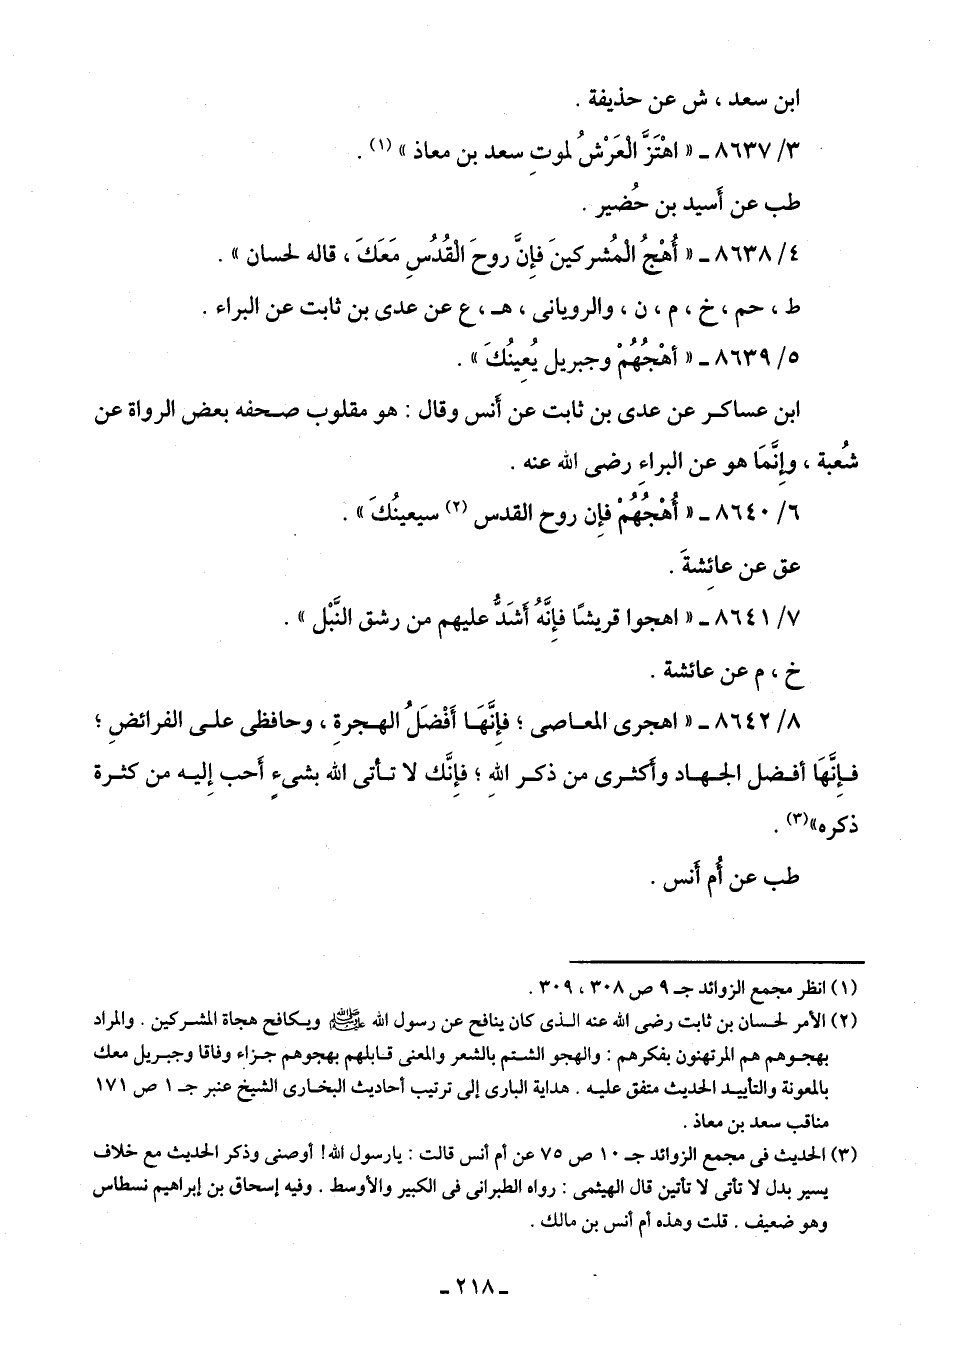 ابن سعد ، ش عن حذيفة .
٣/ ٨٦٣٧ ـ « اهْتَزَّ الْعَرْشُ لموتِ سعد بن معاذ » (١) .
طب عن أَسيد بن حُضير .
٤/ ٨٦٣٨ ـ « أُهْجُ الْمُشركينَ فإِنَّ روحَ الْقُدُسِ مَعَكَ ، قاله لحسان » .
ط ، حم ، خ ، م ، ن ، والرويانى ، هـ ، ع عن عدى بن ثابت عن البراء .
٥/ ٨٦٣٩ ـ « أهْجُهُمْ وجبريل يُعِينُكَ » .
ابن عساكر عن عدى بن ثابت عن أَنس وقال : هو مقلوب صحفه بعض الرواة عن
شُعبة ، وإِنَّمَا هو عن البراءِ رضى الله عنه .
٦/ ٨٦٤٠ ـ « أُهْجُهُمْ فإِن روح القدس (٢) سيعينُكَ » .
عق عن عائِشةَ .
٧/ ٨٦٤١ ـ « اهجوا قريشًا فإِنَّهُ أَشَدُّ عليهم من رشق النَّبْل » .
خ ، م عن عائشة .
٨/ ٨٦٤٢ ـ « اهجرى المعاصى ؛ فإِنَّهَا أَفْضَلُ الهجرةِ ، وحافظى على الفرائضِ ؛
فإِنَّهَا أفضل الجهاد وأكثرى من ذكر اللهِ ؛ فإِنَّك لا تأتى الله بشىءٍ أَحب إِليه من كثرة
ذكره»(٣) .
طب عن أُم أَنس .
(١) انظر مجمع الزوائد جـ ٩ ص ٣٠٨ ، ٣٠٩ .
(٢) الأمر لحسان بن ثابت رضى الله عنه الذى كان ينافح عن رسول الله ﷺ ويكافح هجاة المشركين . والمراد
بهجوهم هم المرتهنون بفكرهم : والهجو الشتم بالشعر والمعنى قابلهم بهجوهم جزاء وفاقا وجبريل معك
بالمعونة والتأييد الحديث متفق عليه . هداية البارى إلى ترتيب أحاديث البخارى الشيخ عنبر جـ ١ ص ١٧١
مناقب سعد بن معاذ .
(٣) الحديث فى مجمع الزوائد جـ ١٠ ص ٧٥ عن أم أنس قالت : يارسول الله! أوصنى وذكر الحديث مع خلاف
يسير بدل لا تأتى لا تأتين قال الهيثمى : رواه الطبرانى فى الكبير والأوسط . وفيه إسحاق بن إبراهيم نسطاس
وهو ضعيف . قلت وهذه أم أنس بن مالك .
ـ ٢١٨ ـ